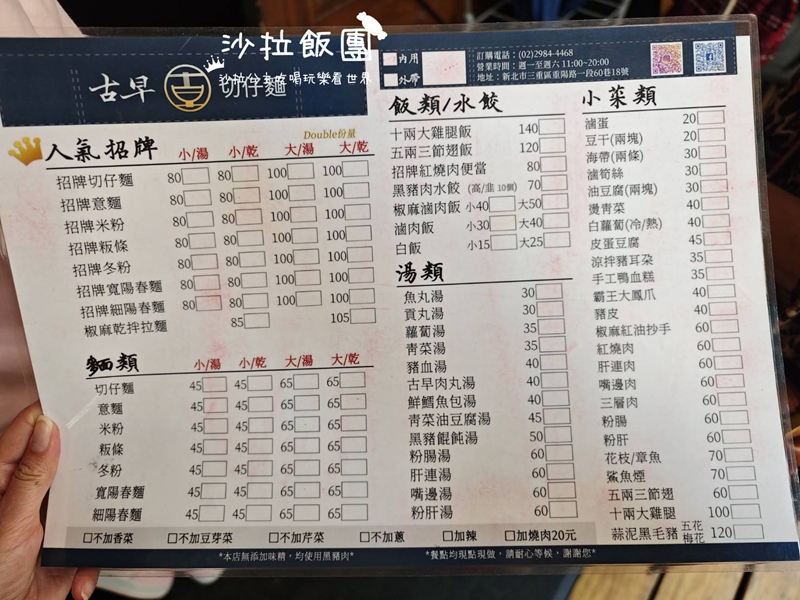 沙拉飯團
沙拉小姐吃喝玩樂看世界
古早 古 切仔麵
內用
外帶
訂購電話：(02)2984-4468
營業時間：週一至週六 11:00~20:00
地址：新北市三重區重陽路一段60巷18號
人氣招牌 小/湯 小/乾 Double份量 大/湯 大/乾
招牌切仔麵 80 80 100 100
招牌意麵 80 80 100 100
招牌米粉 80 80 100 100
招牌粄條 80 80 100 100
招牌冬粉 80 80 100 100
招牌寬陽春麵 80 80 100 100
招牌細陽春麵 80 80 100 100
椒麻乾拌拉麵 85 105
麵類 小/湯 小/乾 大/湯 大/乾
切仔麵 45 45 65 65
意麵 45 45 65 65
米粉 45 45 65 65
粄條 45 45 65 65
冬粉 45 45 65 65
寬陽春麵 45 45 65 65
細陽春麵 45 45 65 65
飯類/水餃
十兩大雞腿飯 140
五兩三節翅飯 120
招牌紅燒肉便當 80
黑豬肉水餃 (高/韭 10個) 70
椒麻滷肉飯 小40 大50
滷肉飯 小30 大40
白飯 小15 大25
湯類
魚丸湯 30
貢丸湯 30
蘿蔔湯 35
青菜湯 35
豬血湯 40
古早肉丸湯 40
鮮鱈魚包湯 40
青菜油豆腐湯 45
黑豬餛飩湯 50
粉腸湯 60
肝連湯 60
嘴邊湯 60
粉肝湯 60
小菜類
滷蛋 20
豆干(兩塊) 20
海帶(兩條) 30
滷筍絲 30
油豆腐(兩塊) 30
燙青菜 40
白蘿蔔(冷/熱) 40
皮蛋豆腐 45
涼拌豬耳朵 35
手工鴨血糕 35
霸王大鳳爪 40
豬皮 40
椒麻紅油抄手 60
紅燒肉 60
肝連肉 60
嘴邊肉 60
三層肉 60
粉腸 60
粉肝 60
花枝/章魚 70
鯊魚煙 70
五兩三節翅 60
十兩大雞腿 100
蒜泥黑毛豬 五花 梅花 120
□不加香菜 □不加豆芽菜 □不加芹菜 □不加蔥 □加辣 □加燒肉20元
*本店無添加味精，均使用黑豬肉* *餐點均現點現做，請耐心等候，謝謝您*